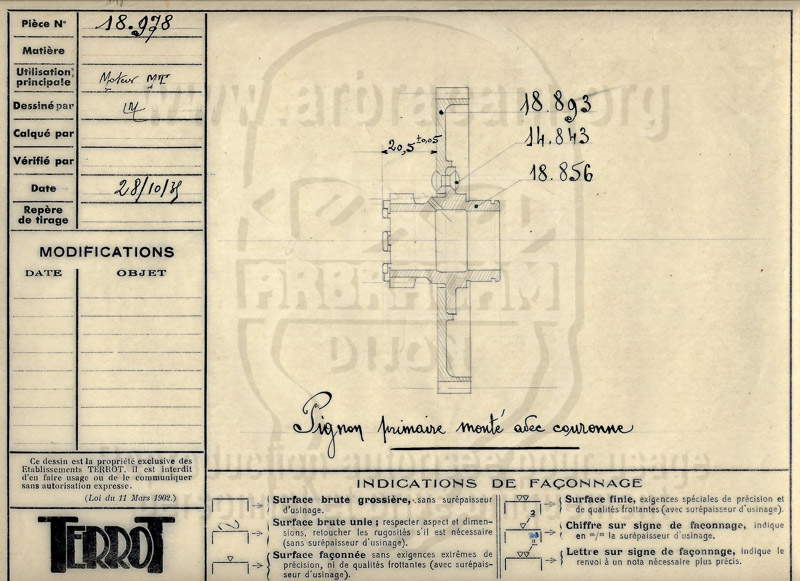 Pièce N° 18.978
Matière
Utilisation principale Moteur MT
Dessiné par
Calqué par
Vérifié par
Date 28/10/35
Repère de tirage
MODIFICATIONS
DATE OBJET
Ce dessin est la propriété exclusive des
Etablissements TERROT. il est interdit
d'en faire usage ou de le communiquer
sans autorisation expresse.
(Loi du 11 Mars 1902.)
TERROT
www.arbracam.org
18.893
14.843
20,5 ±0,05
18.856
ARBRACAM
DIJON
Pignon primaire monté avec couronne
INDICATIONS DE FAÇONNAGE
Surface brute grossière, sans surépaisseur
d'usinage.
Surface brute unie ; respecter aspect et dimen-
sions, retoucher les rugosités s'il est nécessaire
(sans surépaisseur d'usinage).
Surface façonnée sans exigences extrêmes de
précision, ni de qualités frottantes (avec surépais-
seur d'usinage).
Surface finie, exigences spéciales de précision et
de qualités frottantes (avec surépaisseur d'usinage).
Chiffre sur signe de faconnage, indique
en m/m la surépaisseur d'usinage.
Lettre sur signe de façonnage, indique le
renvoi à un nota nécessaire plus précis.